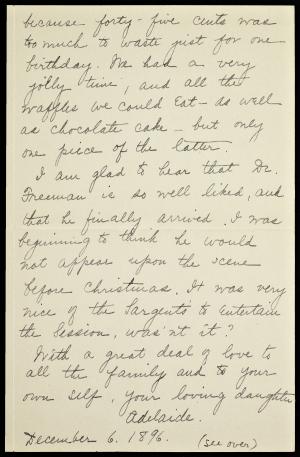 because forty-five cents was
too much to waste just for one
birthday. We had a very
jolly time, and all the
waffles we could eat - as well
as chocolate cake - but only
one piece of the latter.
I am glad to hear that Dr.
Freeman is so well liked, and
that he finally arrived. I was
beginning to think he would
not appear upon the scene
before Christmas. It was very
nice of the Sargents to entertain
the Session, was'nt it?
With a great deal of love to
all the family and to your
own self, your loving daughter
Adelaide.
December 6. 1896.
(see over)